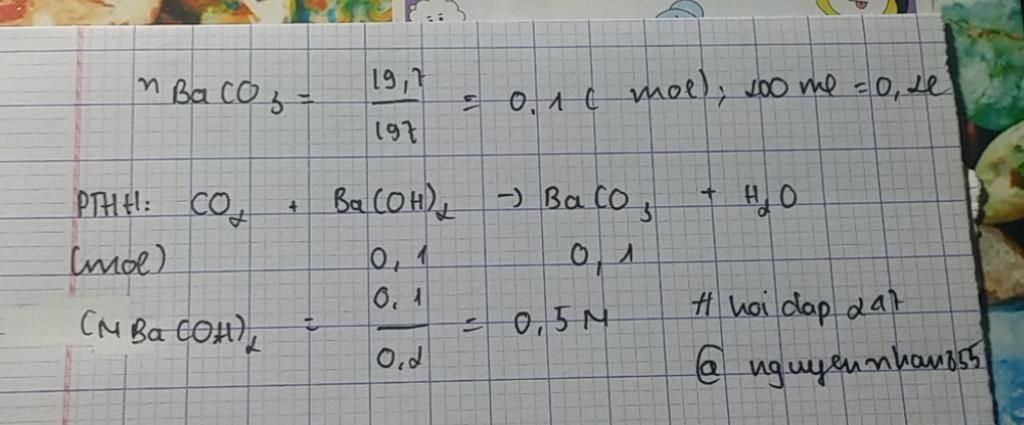 nBaCO3 = 19,7/197 = 0,1 (mol); 200 ml = 0,2l
PTHH: CO2 + Ba(OH)2 → BaCO3 + H2O
(mol) 0,1 0,1
CM Ba(OH)2 = 0,1/0,2 = 0,5M # hoi dap 247
@ nguyennhan355